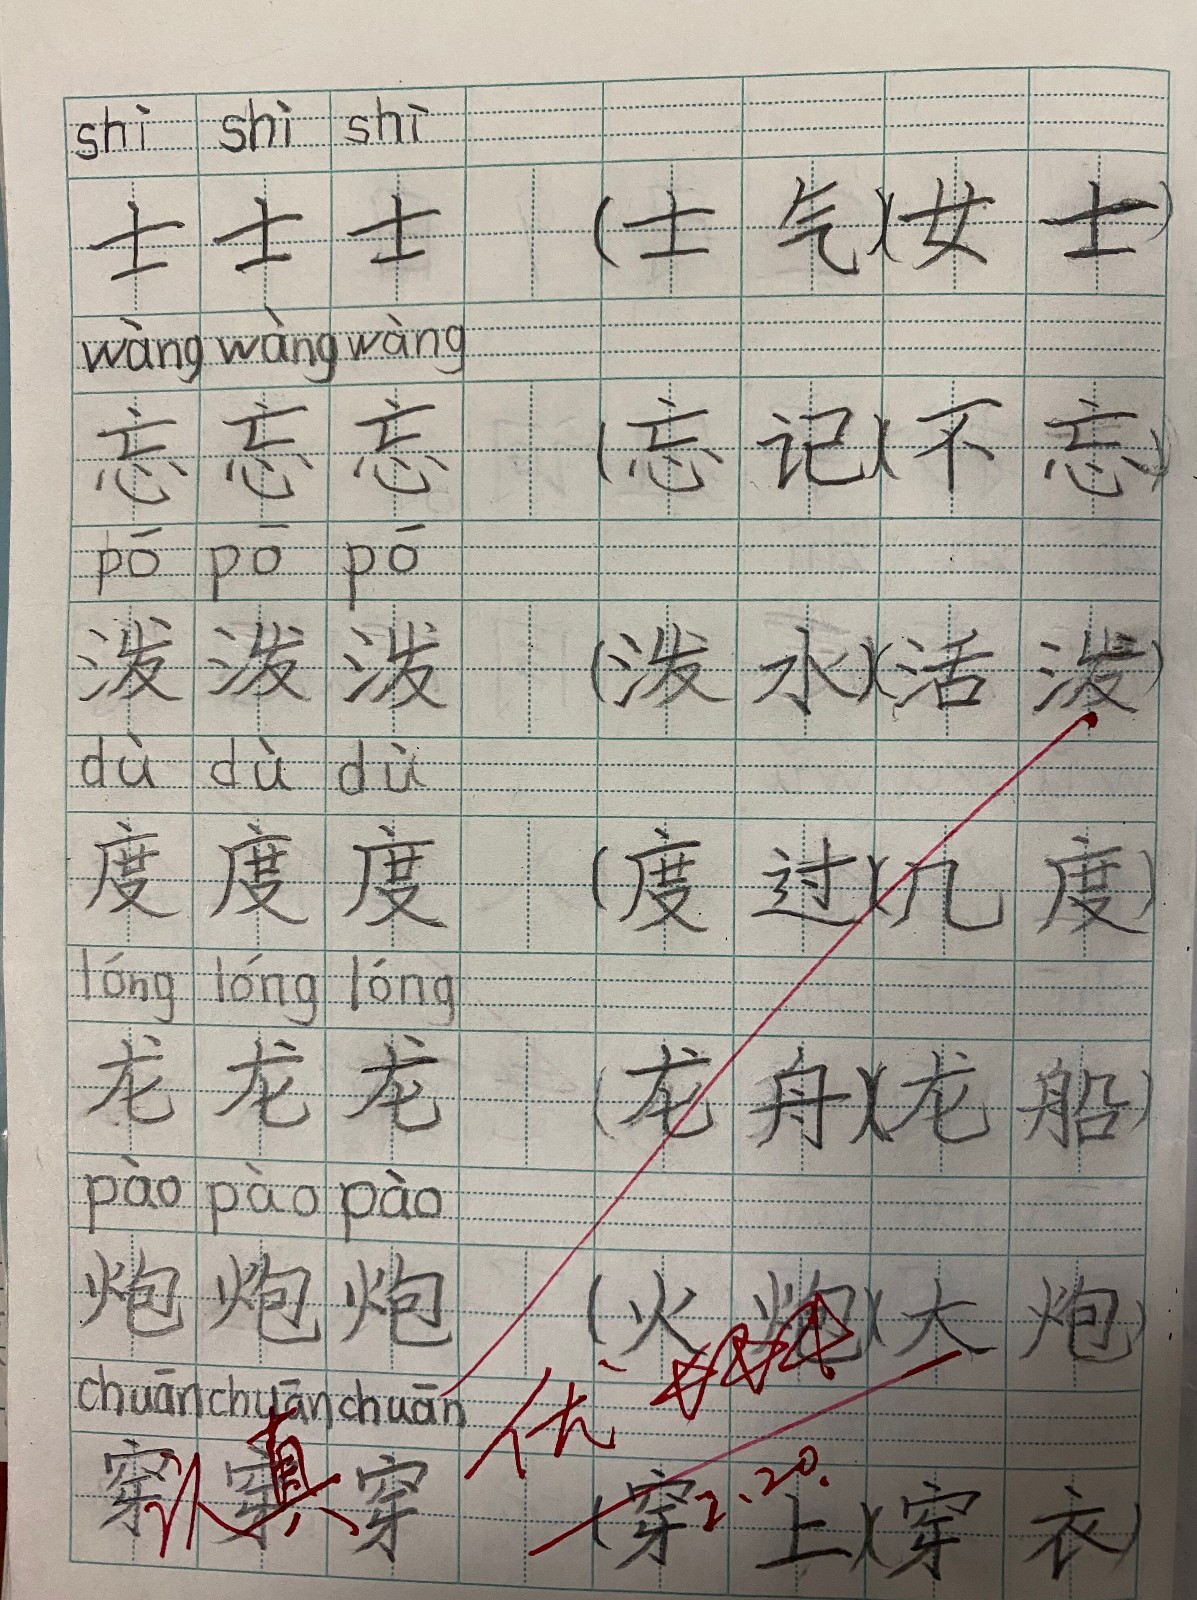 shì shì shì
士 士 士 (士 气)(女 士)
wàng wàng wàng
忘 忘 忘 (忘 记)(不 忘)
pō pō pō
泼 泼 泼 (泼 水)(活 泼)
dù dù dù
度 度 度 (度 过)(几 度)
lóng lóng lóng
龙 龙 龙 (龙 舟)(龙 船)
pào pào pào
炮 炮 炮 (火 炮)(大 炮)
chuān chuān chuān
穿 穿 穿 (穿 上)(穿 衣)
优
认真
2.20.